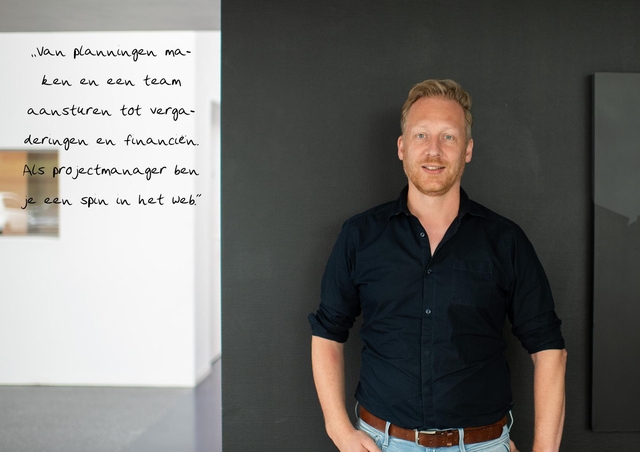 „Van planningen ma-
ken en een team
aansturen tot verga-
deringen en financiën.
Als projectmanager ben
je een spin in het web."